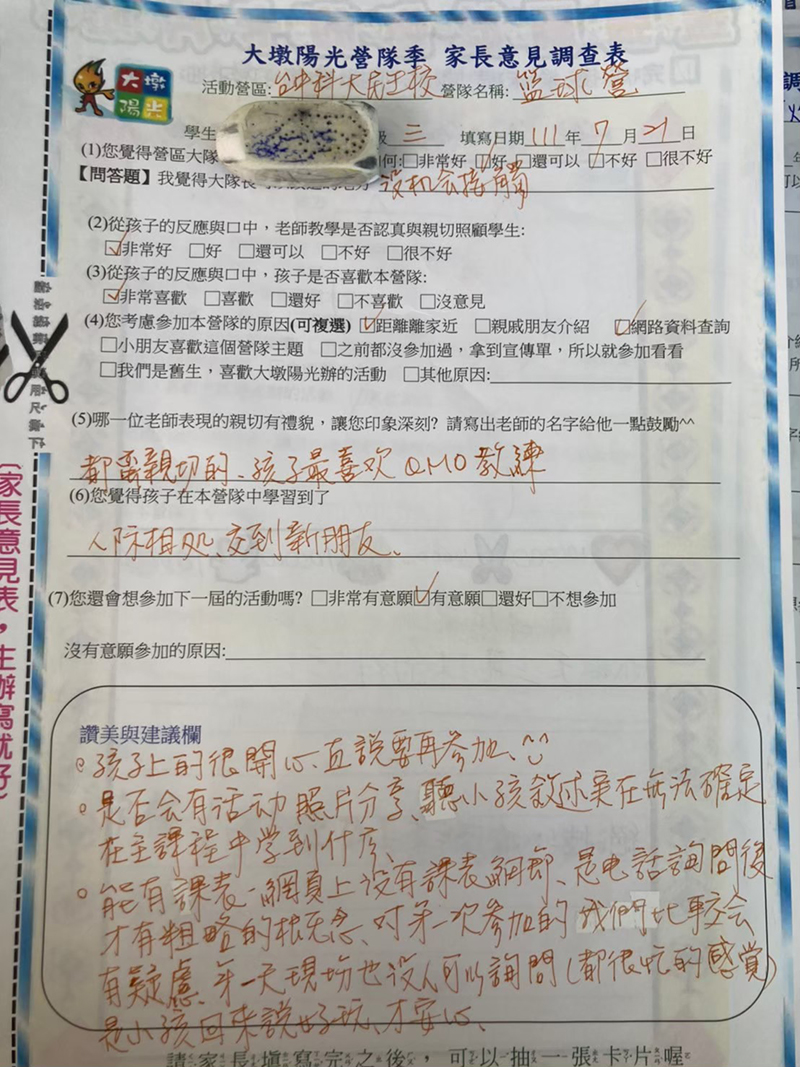 大墩陽光營隊季 家長意見調查表
大墩
陽光
活動營區:台中科大民生校 營隊名稱:籃球營
學生 級 三 填寫日期 111 年 7 月 21 日
(1)您覺得營區大隊 何:□非常好 ☑好 □還可以 □不好 □很不好
【問答題】我覺得大隊長 沒机会接觸
(2)從孩子的反應與口中，老師教學是否認真與親切照顧學生:
☑非常好 □好 □還可以 □不好 □很不好
(3)從孩子的反應與口中，孩子是否喜歡本營隊:
☑非常喜歡 □喜歡 □還好 □不喜歡 □沒意見
(4)您考慮參加本營隊的原因(可複選) ☑距離離家近 □親戚朋友介紹 ☑網路資料查詢
□小朋友喜歡這個營隊主題 □之前都沒參加過，拿到宣傳單，所以就參加看看
□我們是舊生，喜歡大墩陽光辦的活動 □其他原因:
(5)哪一位老師表現的親切有禮貌，讓您印象深刻? 請寫出老師的名字給他一點鼓勵^^
都蠻親切的、孩子最喜欢QMO教練
(6)您覺得孩子在本營隊中學習到了
人际相处、交到新朋友、
(7)您還會想參加下一屆的活動嗎? □非常有意願 ☑有意願 □還好 □不想參加
沒有意願參加的原因:
讚美與建議欄
孩子上的很開心、直說要再參加、
是否会有活动照片分享、聽小孩敘述实在無法確定
在主課程中学到什広、
能有課表、網頁上沒有課表細節、是电話詢問後
才有粗略的概念、对第一次參加的我們比較会
有疑慮、第一天現場也沒人可以詢問(都很忙的感覚)
是小孩回來說好玩、才安心、
請家長填寫完之後，可以抽一張卡片喔
(家長意見表，主辦寫就好)